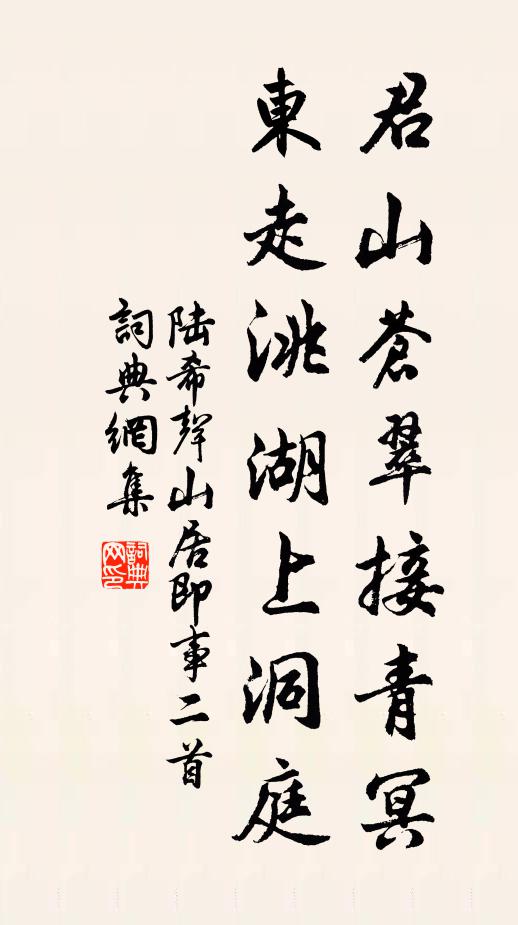 君山蒼翠接青冥
東走洮湖上洞庭
陆希聲山居即事二首
詞典網集
詞典网印